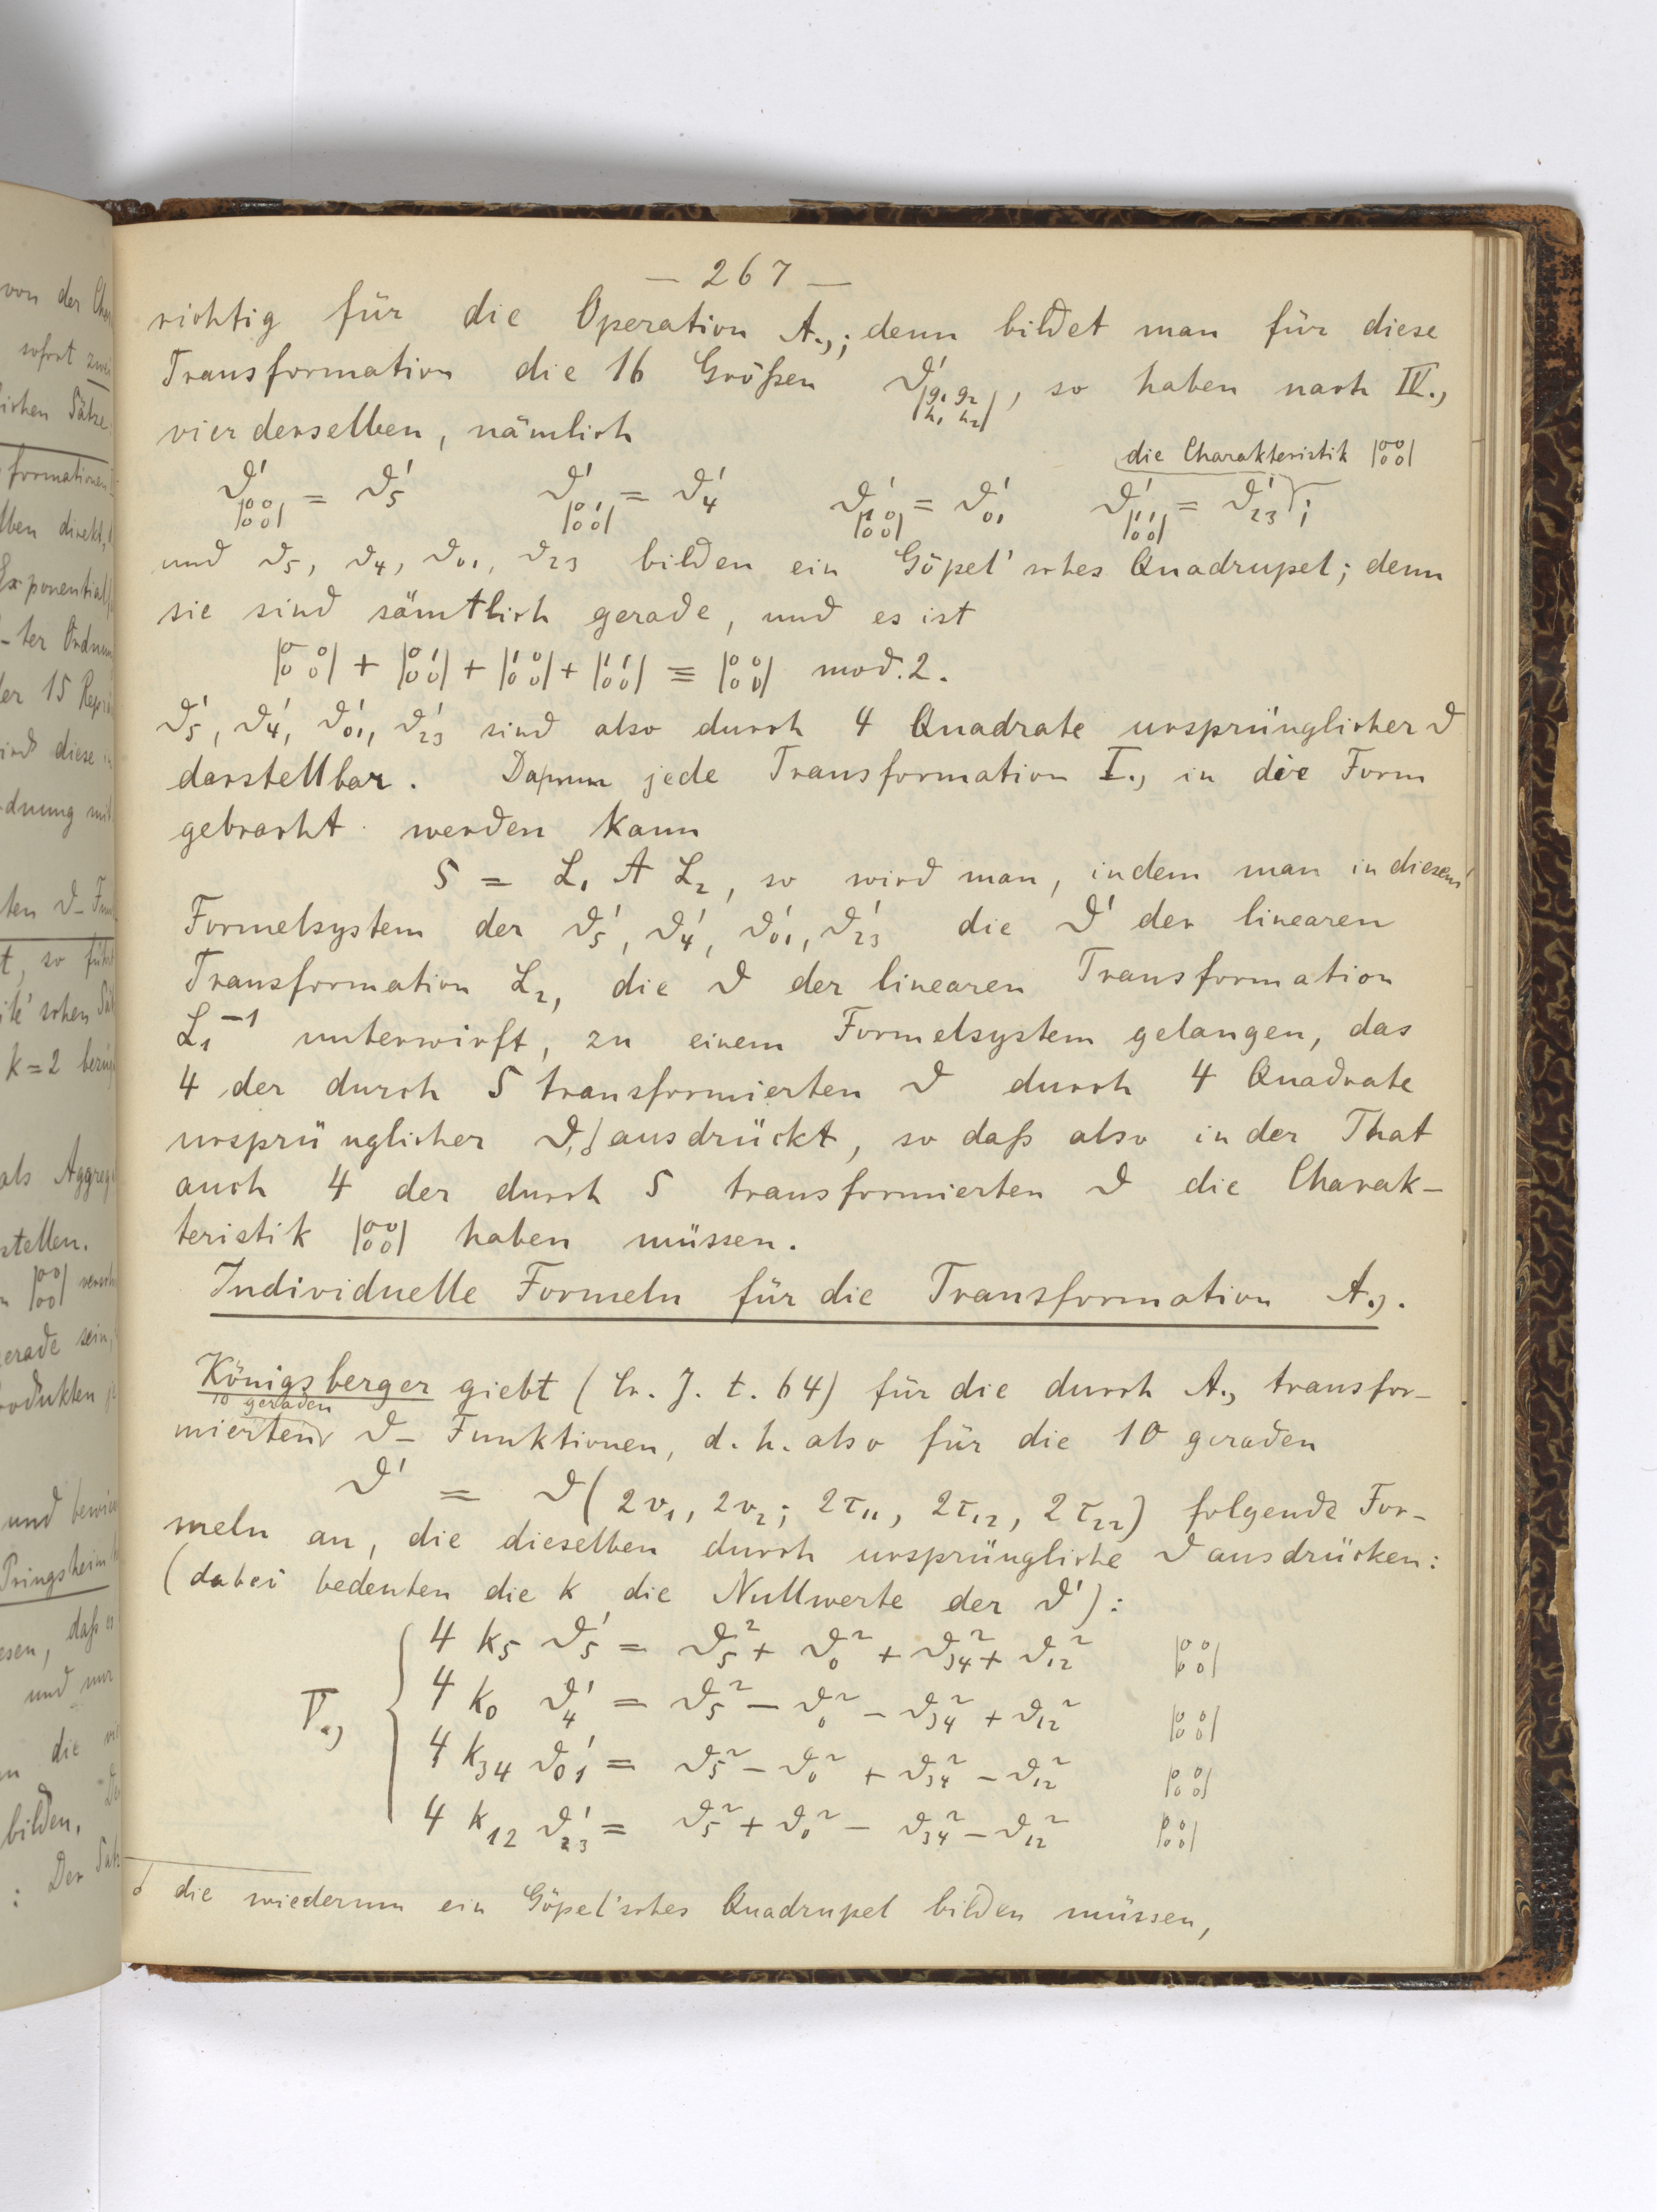 — 267 —
richtig für die Operation A.,; denn bildet man für diese
Transformation die 16 Größen ϑ'|g₁ g₂ / h₁ h₂|, so haben nach IV.,
vier derselben, nämlich
die Charakteristik |00/00|
ϑ'|00/00| = ϑ'₅ ϑ'|01/00| = ϑ'₄ ϑ'|10/00| = ϑ'₀₁ ϑ'|11/00| = ϑ'₂₃ ;
und ϑ₅, ϑ₄, ϑ₀₁, ϑ₂₃ bilden ein Göpel'sches Quadrupel; denn
sie sind sämtlich gerade, und es ist
|00/00| + |01/00| + |10/00| + |11/00| ≡ |00/00| mod. 2.
ϑ'₅, ϑ'₄, ϑ'₀₁, ϑ'₂₃ sind also durch 4 Quadrate ursprünglicher ϑ
darstellbar. Da nun jede Transformation I., in die Form
gebracht werden kann
S = L₁ A L₂, so wird man, indem man in diesem
Formelsystem der ϑ'₅, ϑ'₄, ϑ'₀₁, ϑ'₂₃ die ϑ' der linearen
Transformation L₂, die ϑ der linearen Transformation
L₁⁻¹ unterwirft, zu einem Formelsystem gelangen, das
4 der durch S transformierten ϑ durch 4 Quadrate
ursprünglicher ϑ, ausdrückt, so daß also in der That
auch 4 der durch S transformierten ϑ die Charak-
teristik |00/00| haben müssen.
Individuelle Formeln für die Transformation A.,.
Königsberger giebt (Cr. J. t. 64) für die durch A., transfor-
10 geraden
mierten ϑ- Funktionen, d. h. also für die 10 geraden
ϑ' = ϑ(2v₁, 2v₂; 2τ₁₁, 2τ₁₂, 2τ₂₂) folgende For-
meln an, die dieselben durch ursprüngliche ϑ ausdrücken:
(dabei bedeuten die k die Nullwerte der ϑ'):
4 k₅ ϑ'₅ = ϑ₅² + ϑ₀² + ϑ₃₄² + ϑ₁₂² |00/00|
4 k₀ ϑ'₄ = ϑ₅² − ϑ₀² − ϑ₃₄² + ϑ₁₂² |00/00|
V.,
4 k₃₄ ϑ'₀₁ = ϑ₅² − ϑ₀² + ϑ₃₄² − ϑ₁₂² |00/00|
4 k₁₂ ϑ'₂₃ = ϑ₅² + ϑ₀² − ϑ₃₄² − ϑ₁₂² |00/00|
die wiederum ein Göpel'sches Quadrupel bilden müssen,